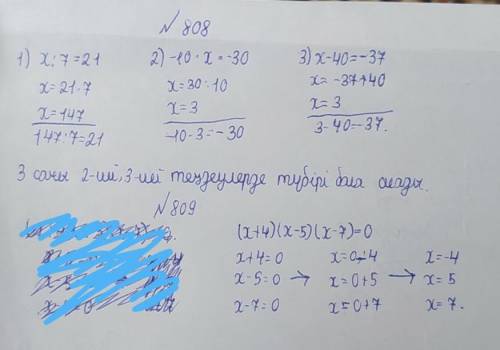 № 808
1) x:7=21 2) -10·x=-30 3) x-40=-37
x=21·7 x=30:10 x=-37+40
x=147 x=3 x=3
147:7=21 -10·3=-30 3-40=-37.
3 саны 2-ший, 3-ший теңдеулерде түбірі бола алады.
№ 809
(x+4)(x-5)(x-7)=0
x+4=0 x=0-4 x=-4
x-5=0 → x=0+5 → x=5
x-7=0 x=0+7 x=7.